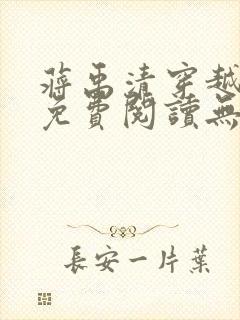 蔣禹清穿越
免費閱讀無
長安一片葉